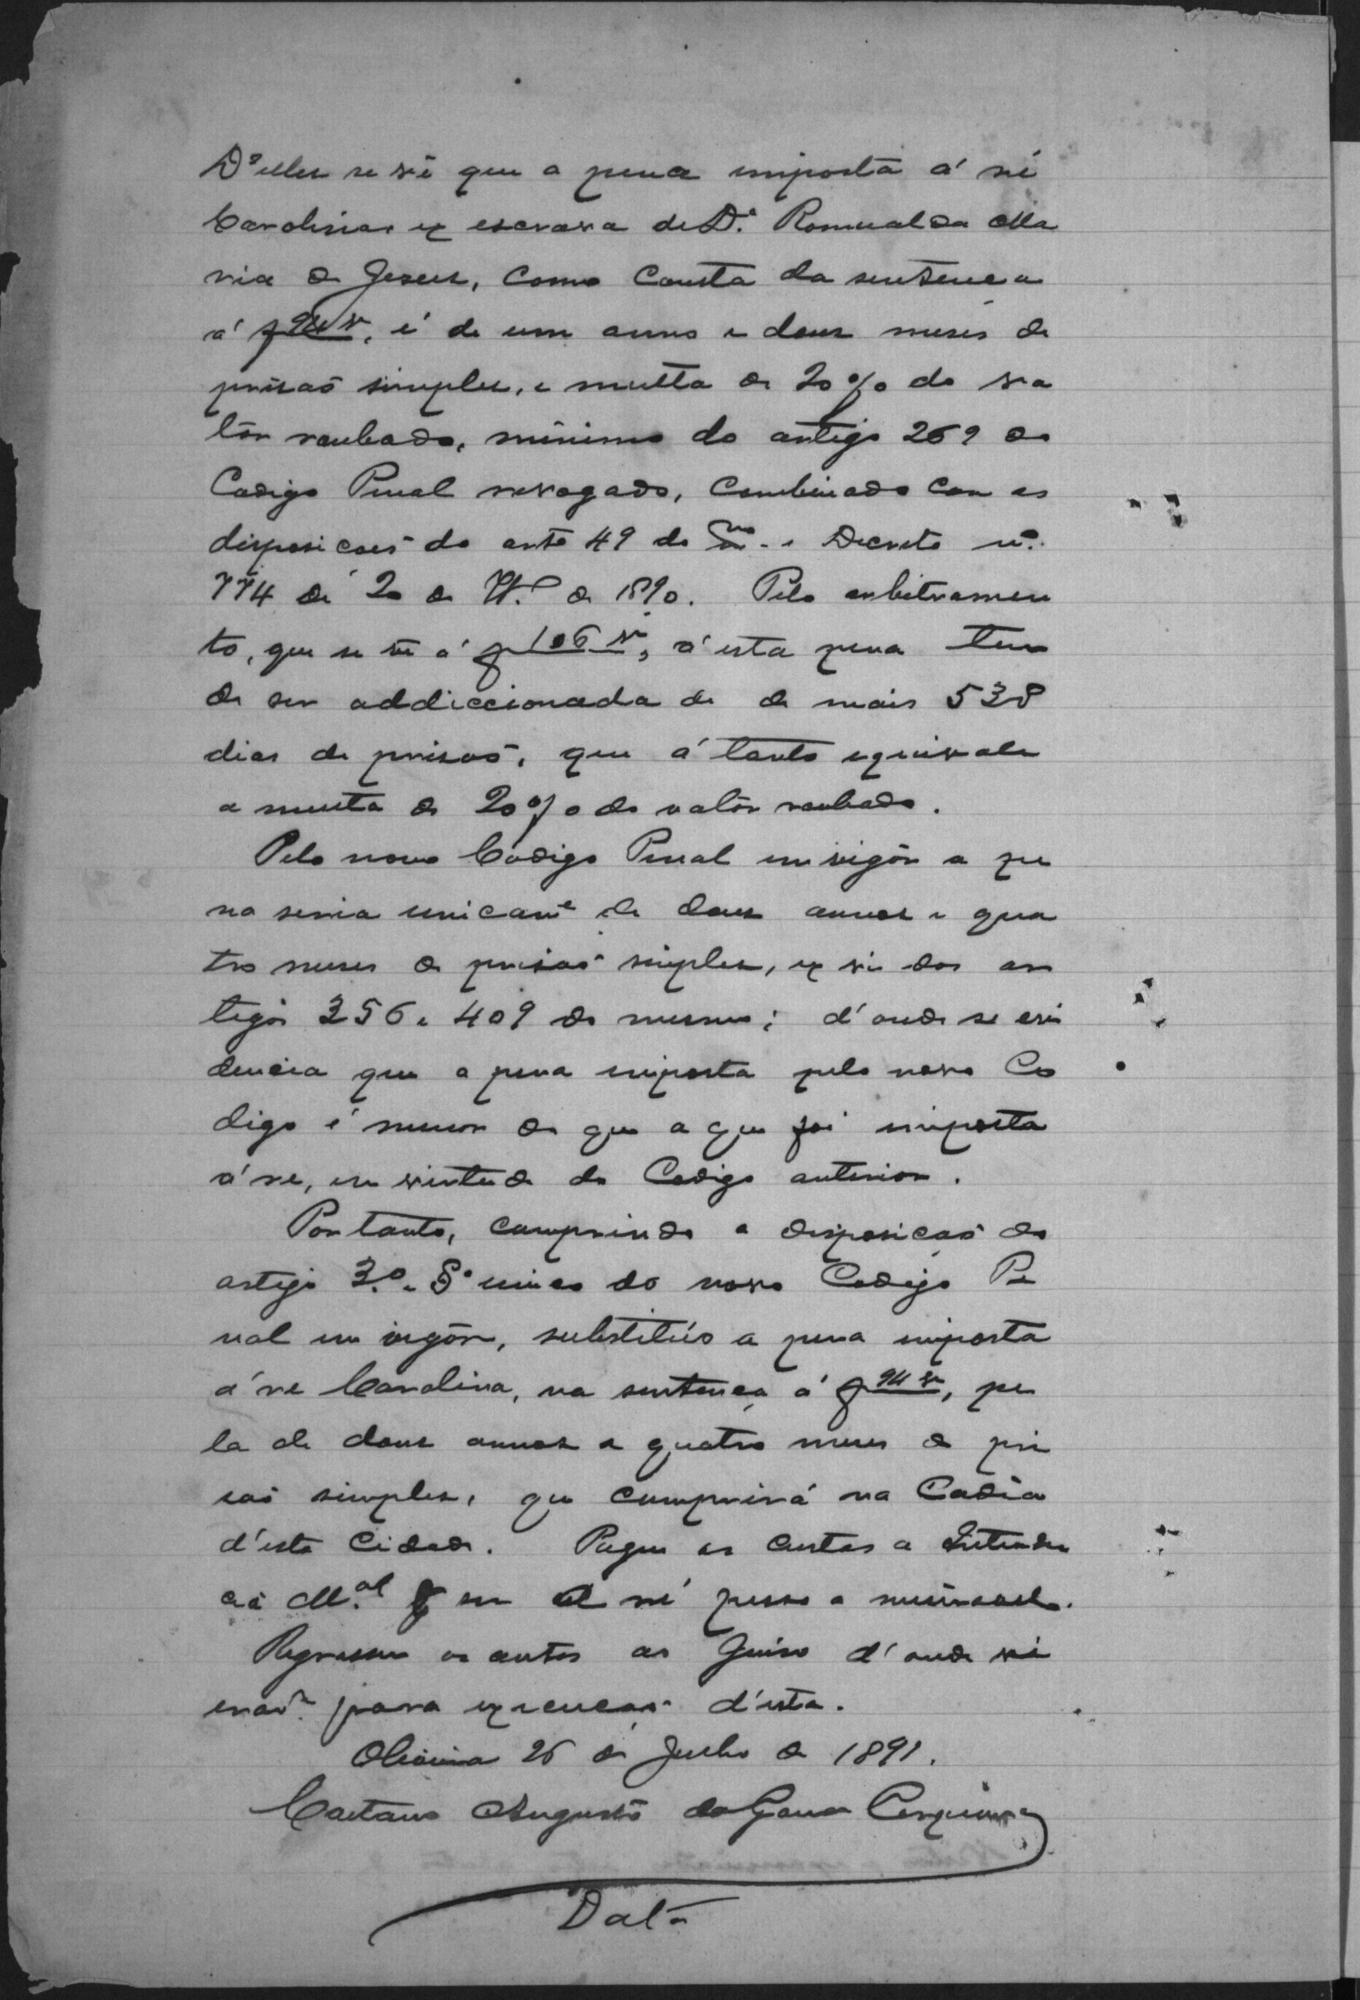 D'elles se vê que a pena imposta á ré
Carolina, ex escrava de D.ª Romualda Ma
ria de Jesus, como consta da sentença
á f 94 v, é de um anno e dous meses de
prisaõ simples, e multa de 20% do va
lôr roubado, minimo do artigo 269 do
Codigo Penal revogado, combinado com as
disposicoẽs do artº 49 do m.mo e Decreto nº.
774 de 20 de de 1890. Pelo arbitramen
to, que se vê á f 106 v, á esta pena tem
de ser addiccionada de de mais 538
dias de prisaõ, que á tanto equivale
a multa de 20% do valôr roubado.
Pelo novo Codigo Penal em vigôr a pe
na seria unicamᵉ de dous annos e qua
tro meses de prisaõ simples, ex vi dos ar
tigos 356 e 409 do mesmo; d'onde se evi
dencia que a pena imposta pelo novo Co
digo é menor do que a que foi imposta
á ré, em virtude do Codigo anterior.
Portanto, cumprindo a disposicaõ do
artigo 3.º § unico do novo Codigo Pe
nal em vigôr, substitúo a pena imposta
á ré Carolina, na sentença á f 94 v, pe
la de dous annos e quatro meses de pri
saõ simples, que cumprirá na Cadêa
d'esta Cidade. Pague as custas a Intenden
cia M.al ser a ré pessoa miseravel.
Regressem os autos ao Juiso d'onde vi
eraõ para execucaõ d'esta.
Oliveira 26 de Julho de 1891.
Caetano Augusto da Gama Cerqueira
Data